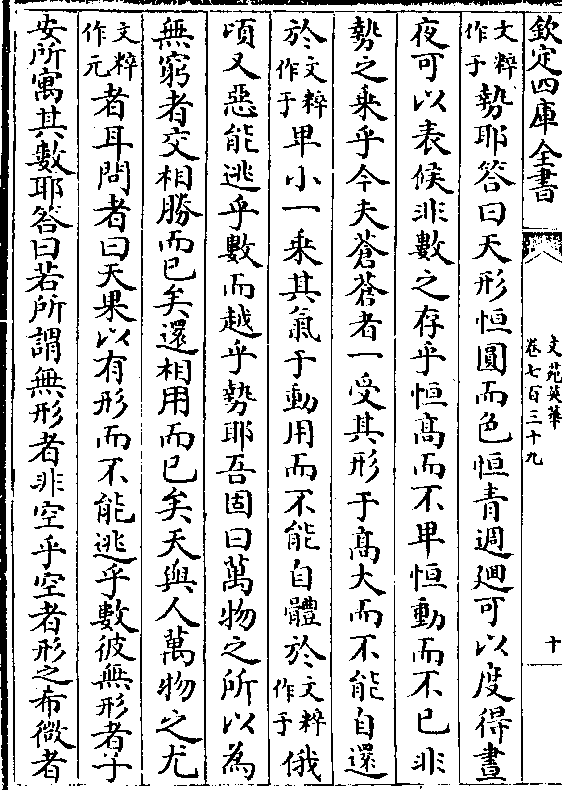 欽定四庫全書
文苑英華
卷七百三十九
十
文粹作于勢耶答曰天形恒圓而色恒青週廻可以度得晝
夜可以表候非數之存乎恒髙而不卑恒動而不已非
勢之乗乎今夫蒼蒼者一受其形于髙大而不能自還
於文粹作于卑小一乗其氣于動用而不能自體於文粹作于俄
頃又惡能逃乎數而越乎勢耶吾固曰萬物之所以為
無窮者交相勝而已矣還相用而已矣天與人萬物之尤
文粹作元者耳問者曰天果以有形而不能逃乎數彼無形者子
安所寓其數耶答曰若所謂無形者非空乎空者形之布微者